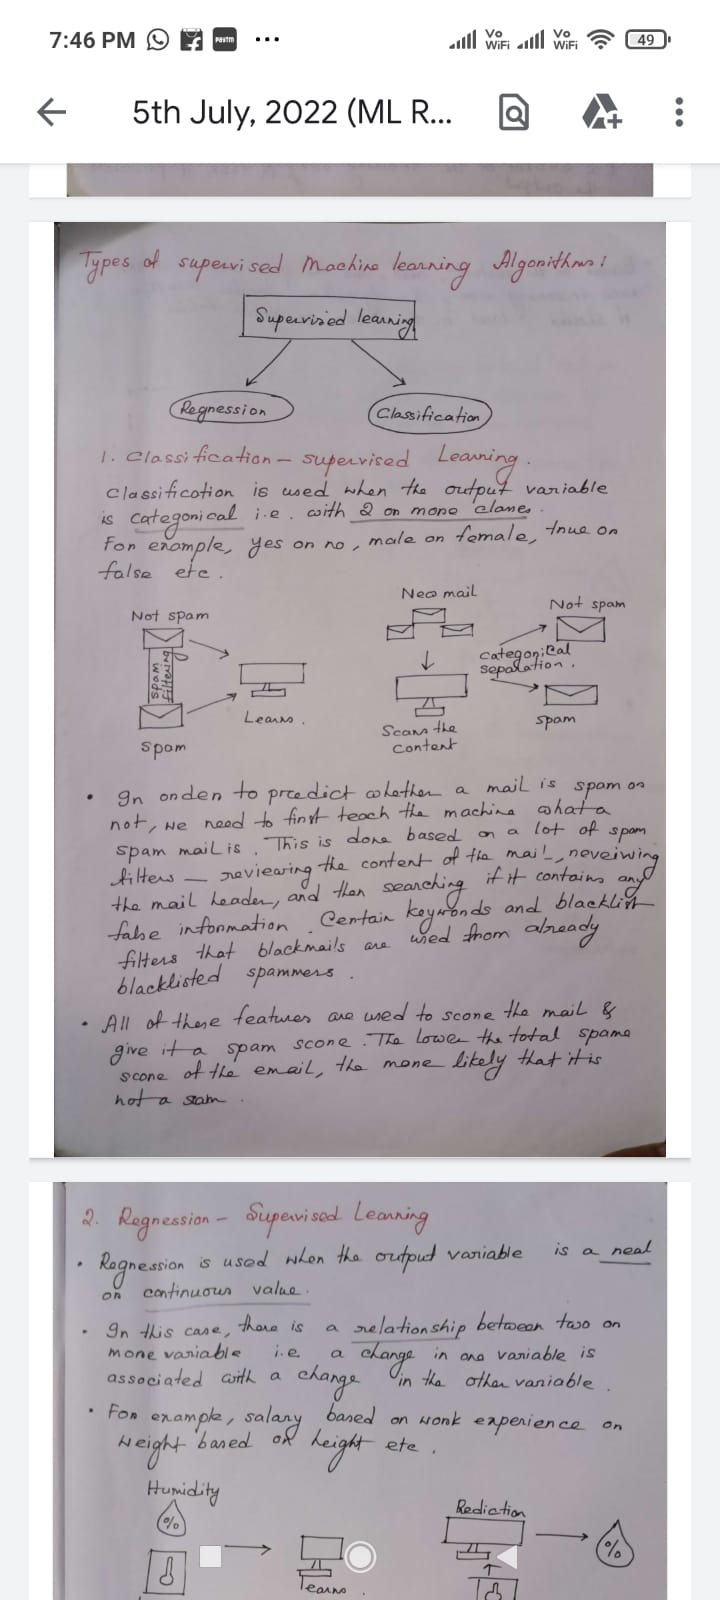 7:46 PM
Paytm
Vo WiFi
Vo WiFi
49
5th July, 2022 (ML R...
Types of supervised Machine learning Algorithms:
Supervised learning
Regression
Classification
1. Classification - supervised Learning.
Classification is used when the output variable
is categorical i.e. with 2 or more classes.
For example, yes or no, male or female, true or
false etc.
Not spam
spam filtering
Spam
Learns.
New mail
Scans the
content
categorical
separation.
Not spam
spam
• In order to predict whether a mail is spam or
not, we need to first teach the machine what a
spam mail is. This is done based on a lot of spam
filters - reviewing the content of the mail, reveiwing
the mail header, and then searching if it contains any
false information. Certain keywords and blacklist
filters that blackmails are used from already
blacklisted spammers.
• All of these features are used to score the mail &
give it a spam score. The lower the total spam
score of the email, the more likely that it is
not a scam.
2. Regression - Supervised Learning
• Regression is used when the output variable is a real
or continuous value.
• In this case, there is a relationship between two or
more variable i.e a change in one variable is
associated with a change in the other variable.
• For example, salary based on work experience or
weight based on height etc.
Humidity
%
Learns.
Rediction
%